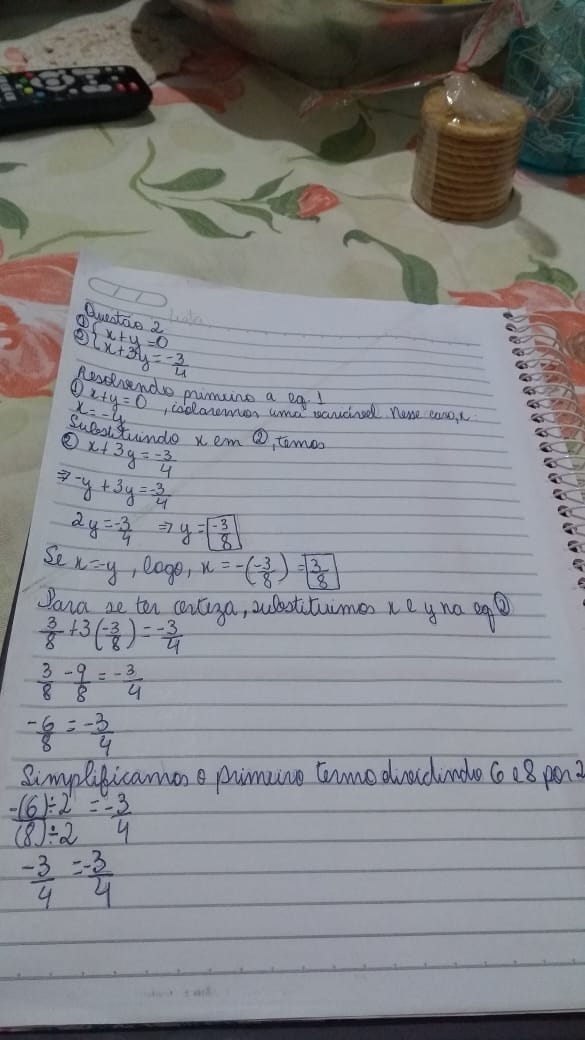 Questão 2
① { x + y = 0
② { x + 3y = -3/4
Resolvendo primeiro a eq. 1
① x + y = 0, isolaremos uma variável. Nesse caso, x.
x = -y
Substituindo x em ②, temos
② x + 3y = -3/4
⇒ -y + 3y = -3/4
2y = -3/4 ⇒ y = -3/8
Se x = -y, logo, x = -(-3/8) = 3/8
Para se ter certeza, substituimos x e y na eq ②
3/8 + 3(-3/8) = -3/4
3/8 - 9/8 = -3/4
-6/8 = -3/4
Simplificamos o primeiro termo dividindo 6 e 8 por 2
-(6)÷2/(8)÷2 = -3/4
-3/4 = -3/4